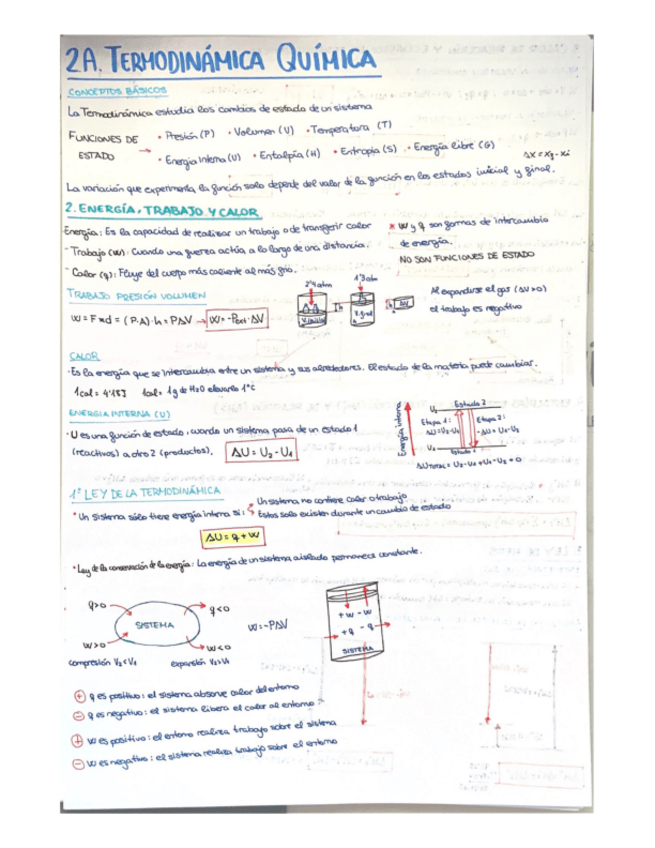 2A. TERMODINÁMICA QUÍMICA
CONCEPTOS BÁSICOS
La Termodinámica estudia los cambios de estado de un sistema
FUNCIONES DE ESTADO → • Presión (P) • Volumen (V) • Temperatura (T)
• Energía Interna (U) • Entalpía (H) • Entropía (S) • Energía libre (G)
Δx = xf - xi
La variación que experimenta la función solo depende del valor de la función en los estados inicial y final.
2. ENERGÍA, TRABAJO Y CALOR
Energía: Es la capacidad de realizar un trabajo o de transferir calor
- Trabajo (w): Cuando una fuerza actúa a lo largo de una distancia.
- Calor (q): Fluye del cuerpo más caliente al más frío.
* W y q son formas de intercambio
de energía.
NO SON FUNCIONES DE ESTADO
TRABAJO PRESIÓN VOLUMEN
W = F x d = (P·A)·h = PΔV → W = -Pext·ΔV
2'4 atm
1'3 atm
V.inicial
V.final
h
ΔV
Al expandirse el gas (ΔV>0)
el trabajo es negativo
CALOR
• Es la energía que se intercambia entre un sistema y sus alrededores. El estado de la materia puede cambiar.
1cal = 4'18J 1cal = 1g de H2O elevarlo 1°C
ENERGIA INTERNA (U)
• U es una función de estado, cuando un sistema pasa de un estado 1
(reactivos) a otro 2 (productos).
ΔU = U2 - U1
Energía interna
U2
Estado 2
Etapa 1:
ΔU = U2-U1
Etapa 2:
-ΔU = U1-U2
Estado 1
1ª LEY DE LA TERMODINÁMICA
• Un sistema sólo tiene energía interna si:
Un sistema no contiene calor o trabajo
Estos solo existen durante un cambio de estado
ΔU = q + w
• Ley de la conservación de la energía: La energía de un sistema aislado permanece constante.
q>0
q<0
SISTEMA
W>0
W<0
compresión V2<V1
expansión V2>V1
W = -PΔV
+w -w
+q -q
SISTEMA
+ q es positivo: el sistema absorve calor del entorno
- q es negativo: el sistema libera el calor al entorno
+ w es positivo: el entorno realiza trabajo sobre el sistema
- w es negativo: el sistema realiza trabajo sobre el entorno